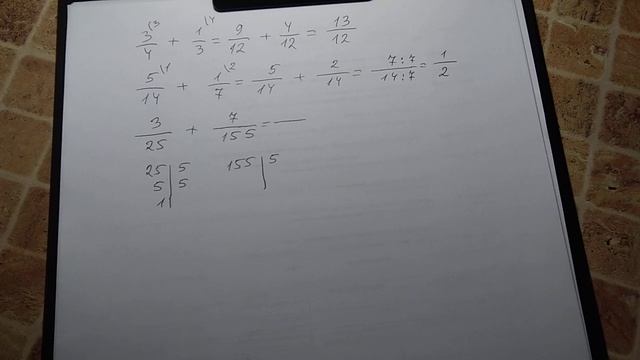 3/4 \3 + 1/3 \4 = 9/12 + 4/12 = 13/12
5/14 \1 + 1/7 \2 = 5/14 + 2/14 = 7:7/14:7 = 1/2
3/25 + 7/155 = —
25 | 5 155 | 5
5 | 5
1 |